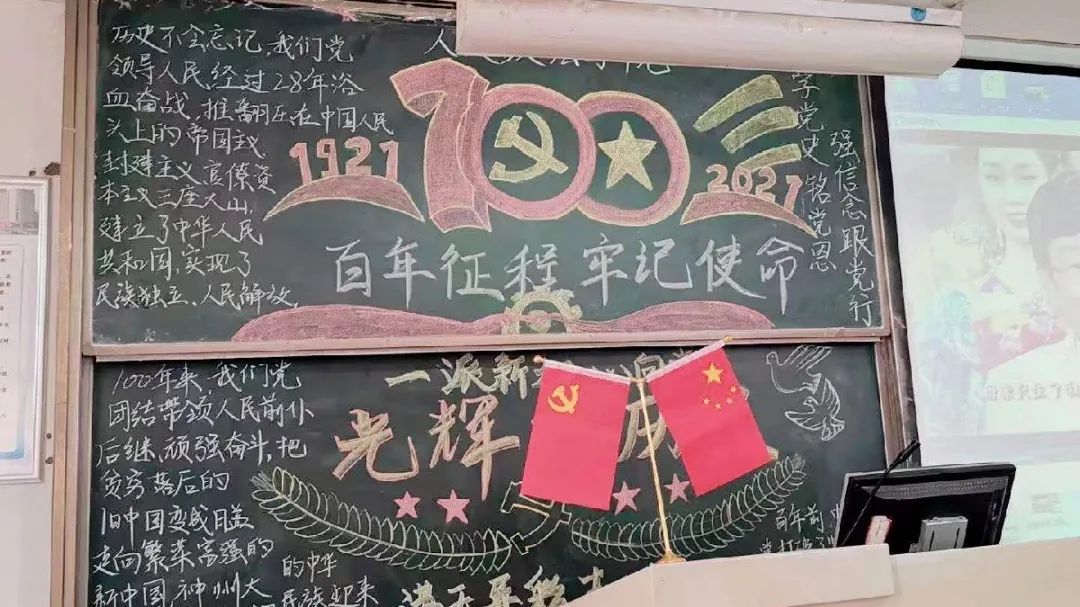 历史不会忘记,我们党
领导人民经过28年浴
血奋战,推翻压在中国人民
头上的帝国主义
封建主义,官僚资
本主义三座大山,
建立了中华人民
共和国,实现了
民族独立、人民解放,
1921
100
2021
百年征程牢记使命
学党史铭党恩
强信念跟党行
100年来,我们党
团结带领人民前仆
后继、顽强奋斗,把
贫穷落后的
旧中国变成日益
走向繁荣富强的
新中国,神州大
的中华
民族迎来
一派新
光辉
百年前,中